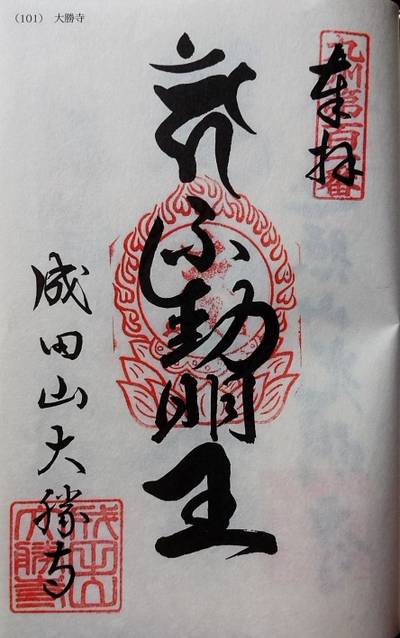 (101) 大勝寺
九州第百一番
奉拝
不動明王
成田山大勝寺